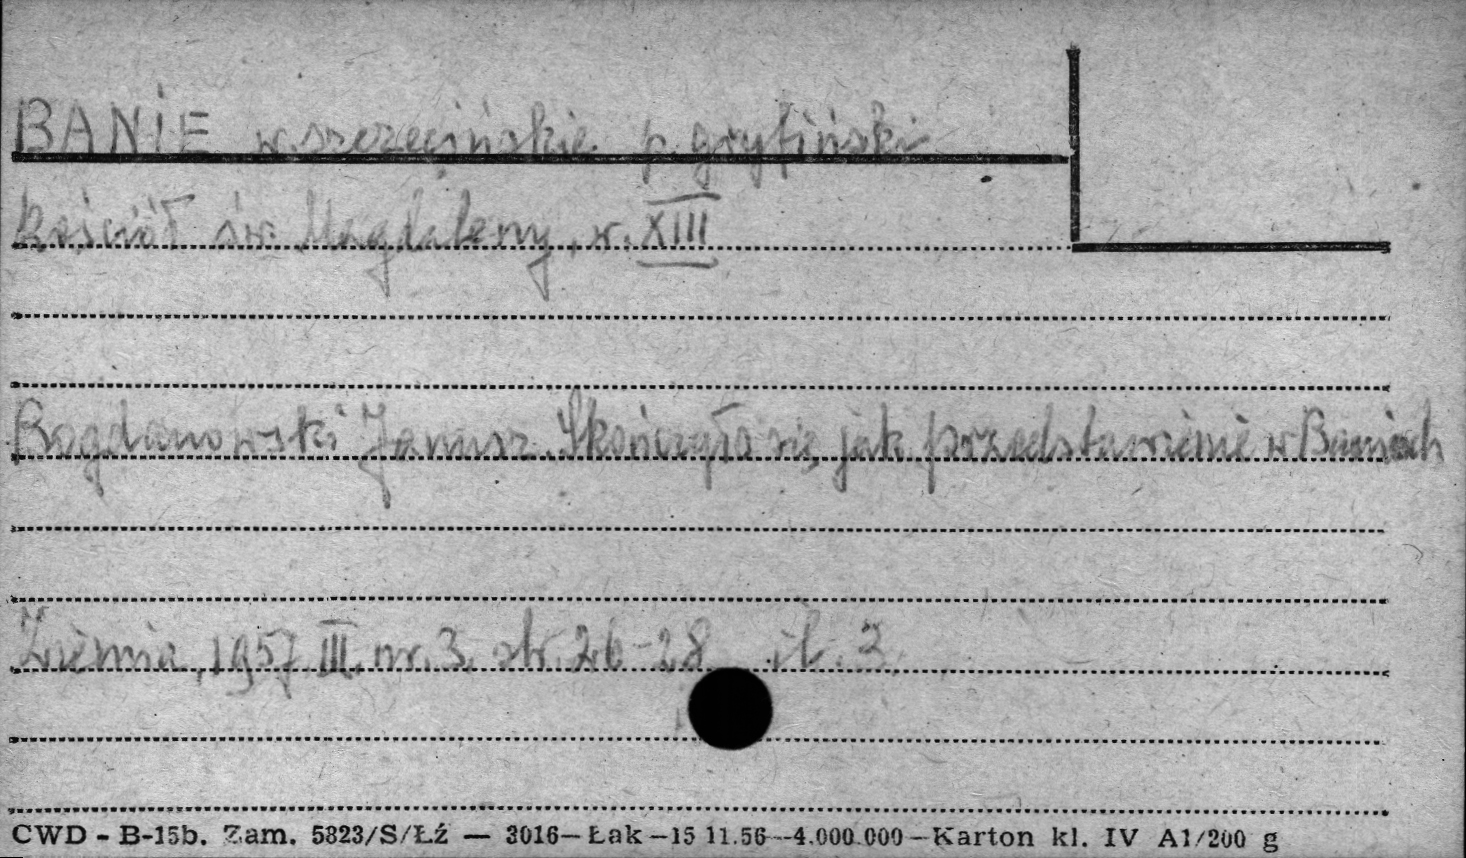 BANIE w. szczecińskie p. gryfiński
kościół św. Magdaleny, w. XIII
Bogdanowski Janusz. Skończyło się jak przedstawienie w Baniach
Ziemia, 1957 III. nr. 3. str. 26-28 il. 3.
CWD - B-15b. Zam. 5823/S/Łź — 3016—Łak—15 11.56—4.000.000—Karton kl. IV A1/200 g